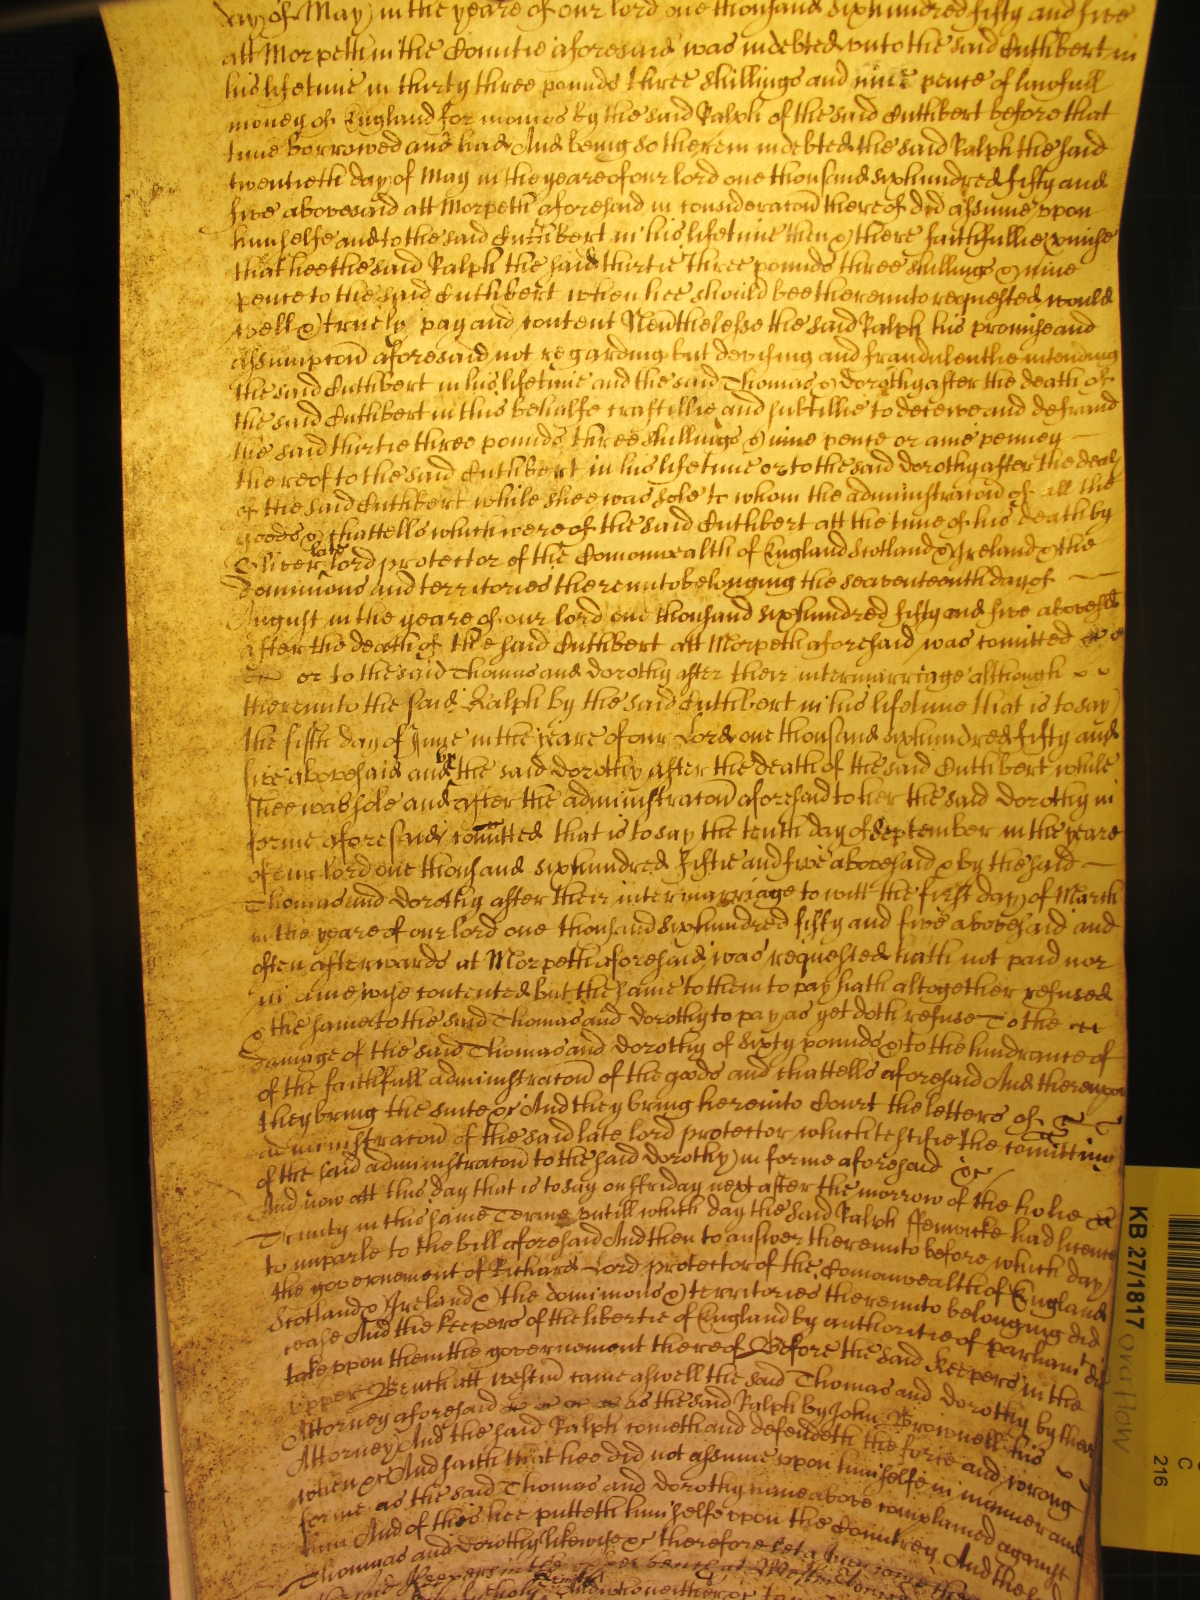 day of May in the yeare of our lord one thousand sixhundred fifty and five
att Morpeth in the Countie aforesaid was indebted unto the said Cuthbert in
his lifetime in thirty three pounds three shillings and nine pence of lawfull
money of England for monies by the said Ralph of the said Cuthbert before that
time borrowed and had And being so therein indebted the said Ralph the said
twentieth day of May in the yeare of our lord one thousand sixhundred fifty and
five abovesaid att Morpeth aforesaid in consideracon thereof did assume upon
himselfe and to the said Cuthbert in his lifetime then & there faithfullie promise
that hee the said Ralph the said thirtie three pounds three shillings & nine
pence to the said Cuthbert when hee should bee thereunto requested would
well & truely pay and content Neverthelesse the said Ralph his promise and
assumpcon aforesaid not regarding but devising and fraudulentlie intending
the said Cuthbert in his lifetime and the said Thomas & Dorothy after the death of
the said Cuthbert in this behalfe craftillie and subtillie to deceive and defraud
the said thirtie three pounds three shillings & nine pence or anie penney
thereof to the said Cuthbert in his lifetime or to the said Dorothy after the death
of the said Cuthbert while shee was sole to whom the administracon of all the
goods & chattells which were of the said Cuthbert att the time of his death by
Oliver late lord protector of the Comonwealth of England Scotland & Ireland & the
dominions and territories thereunto belonging the seaventeenth day of
August in the yeare of our lord one thousand sixhundred fifty and five abovesd
after the death of the said Cuthbert att Morpeth aforesaid was comitted
or to the said Thomas and Dorothy after their intermarriage although
thereunto the said Ralph by the said Cuthbert in his lifetime that is to say
the fifth day of June in the yeare of our Lord one thousand sixhundred fifty and
five abovesaid and by the said Dorothy after the death of the said Cuthbert while
shee was sole and after the administracon aforesaid to her the said Dorothy in
forme aforesaid comitted that is to say the tenth day of September in the yeare
of our lord one thousand sixhundred fiftie and five abovesaid & by the said
Thomas and Dorothy after their intermarriage to witt the first day of March
in the yeare of our lord one thousand sixhundred fifty and five abovesaid and
often afterwards at Morpeth aforesaid was requested hath not paid nor
in anie wise contented but the same to them to pay hath altogether refused
& the same to the said Thomas and Dorothy to pay as yet doth refuse To the
damage of the said Thomas and Dorothy of sixty pounds & to the hindrance of
of the faithfull administracon of the goods and chattells aforesaid And thereupon
they bring the suite &c And they bring here into Court the letters of
administracon of the said late lord protector which testifie the comitting
of the said administracon to the said Dorothy in forme aforesaid &c
And now att this day that is to say on ffriday next after the morrow of the holie
Trinity in this same Terme untill which day the said Ralph ffenwicke had licence
to imparle to the bill aforesaid And then to answer thereunto before which day
the governement of Richard Lord protector of the Comonwealth of England
Scotland & Ireland & the dominions & territories thereunto belonging did
cease And the keepers of the libertie of England by authoritie of parliamt did
take uppon them the governement thereof Before the said keepers in the
upper Bench att westmr came aswell the said Thomas and Dorothy by their
Attorney aforesaid as the said Ralph by John Brownell his
Attorney And the said Ralph cometh and defendeth the force and wrong
when &c And saith that hee did not assume upon himselfe in manner and
forme as the said Thomas and Dorothy have above complained against
him And of this hee putteth himselfe upon the Countrey And the said
Thomas and Dorothy likewise &c therefore let a Jury come
keepers in the upper bench at Westminster
KB 27/1817
overflow
C
216